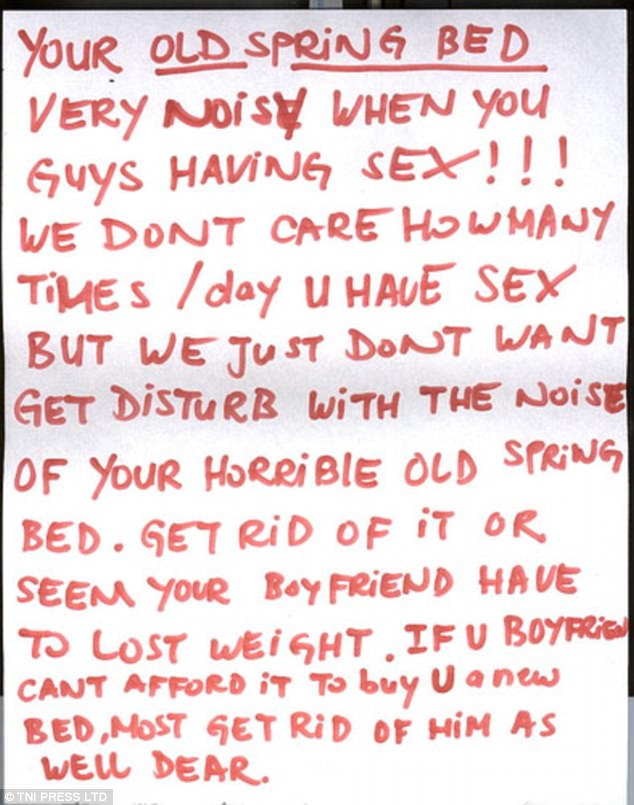 YOUR OLD SPRING BED
VERY NOISY WHEN YOU
GUYS HAVING SEX!!!
WE DONT CARE HOW MANY
TIMES /day U HAVE SEX
BUT WE JUST DONT WANT
GET DISTURB WITH THE NOISE
OF YOUR HORRIBLE OLD SPRING
BED. GET RID OF IT OR
SEEM YOUR BOYFRIEND HAVE
TO LOST WEIGHT. IF U BOYFRIEN
CANT AFFORD IT TO buy U a new
BED, MOST GET RID OF HIM AS
WELL DEAR.
© TNI PRESS LTD